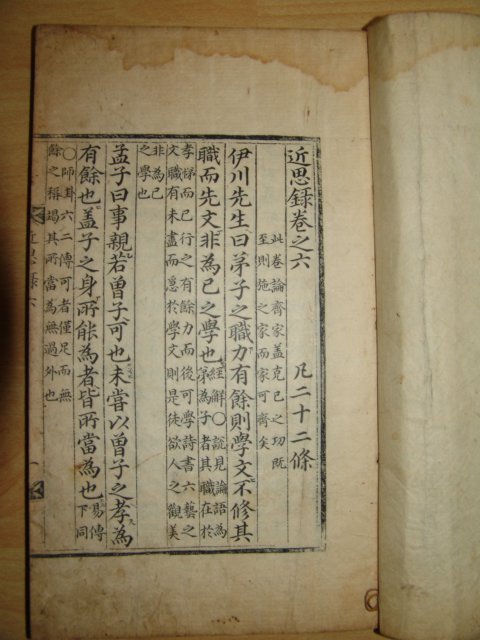 近思録卷之六
此卷論齊家盖克已之功既
至則施之家而家可齊矣
凡二十二條
伊川先生曰弟子之職力有餘則學文不修其
職而先文非為已之學也
經解○說見論語為
弟為子者其職在於
孝悌而已行之有餘力而後可學詩書六藝之
文職有未盡而急於學文則是徒欲人之觀美
非為已
之學也
孟子曰事親若曾子可也未嘗以曾子之孝為
有餘也盖子之身所能為者皆所當為也
易傳
下同
○師卦六二傳可者僅足而無
餘之稱竭其所當為無過外也
近思録六